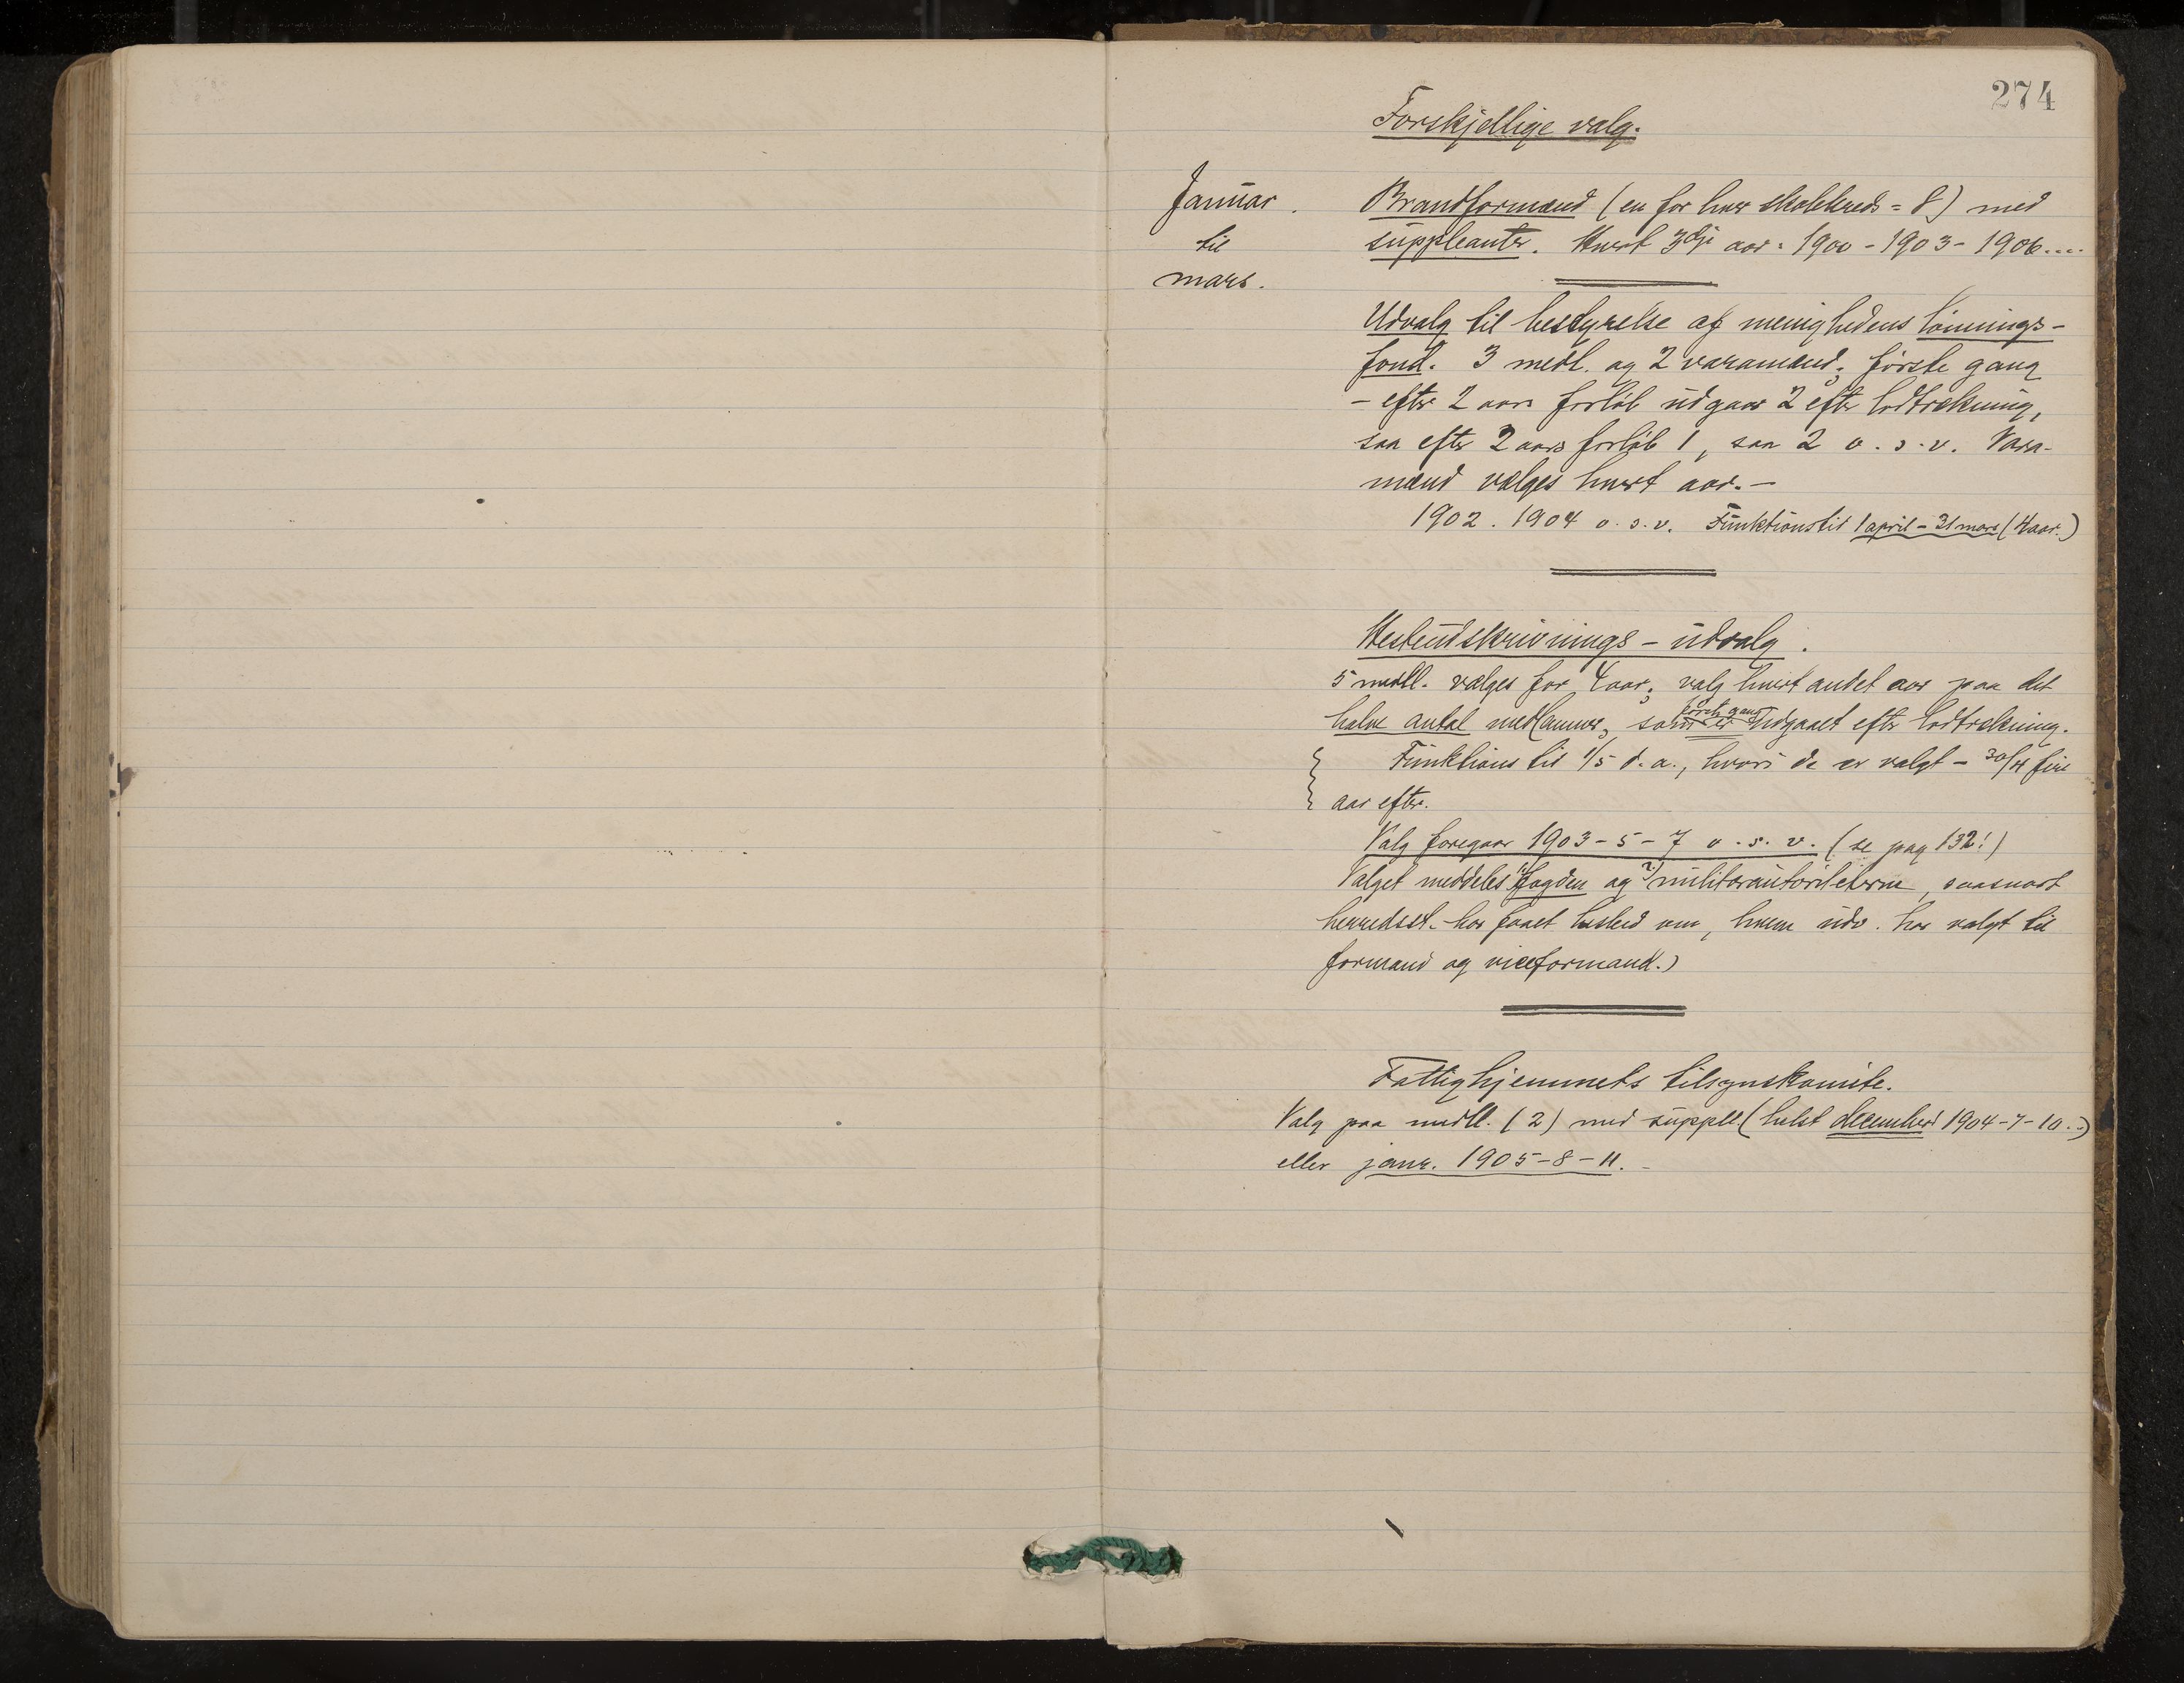 274
Forskjellige valg.
Januar.
til
mars.
Brandformænd (en for hver skolekreds = 8) med
suppleanter. Hvert 3dje aar: 1900 - 1903 - 1906....
Udvalg til bestyrelse af menighedens lønnings-
fond. 3 medl. og 2 varamænd; første gang
- efter 2 aars forløb udgaar 2 efter lodtrækning,
saa efter 2 aars forløb 1, saa 2 o. s. v. Vara-
mænd vælges hvert aar. -
1902. 1904 o. s. v. Funktionstid 1 april - 31 mars (4 aar.)
Hesteudskrivnings - udvalg.
5 medl. vælges for 4 aar; valg hvert andet aar paa det
halve antal medlemmer, som er første gang udgaaet efter lodtrækning.
Funktionstid 1/5 d. a., hvori de er valgt - 30/4 fire
aar efter.
Valg foregaar 1903 - 5 - 7 o. s. v. (se pag 132!)
Valget meddeles 1) fogden og 2) militærautoriteterne, saasnart
herredsst. har faaet besked om, hvem udv. har valgt til
formand og viceformand.)
Fattighjemmets tilsynskomite.
Valg paa medll. (2) med suppll. (helst december 1904 - 7 - 10..)
eller janr. 1905 - 8 - 11. -